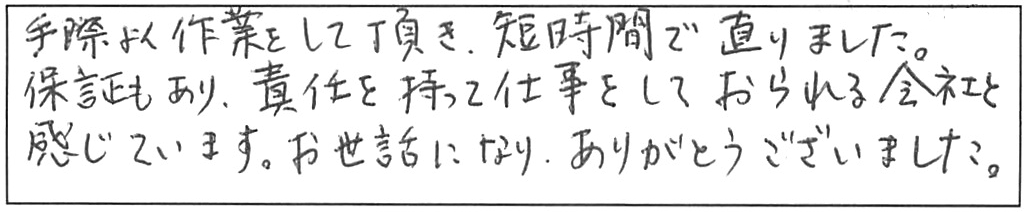 手際よく作業をして頂き、短時間で直りました。
保証もあり、責任を持って仕事をしておられる会社と
感じています。お世話になり、ありがとうございました。